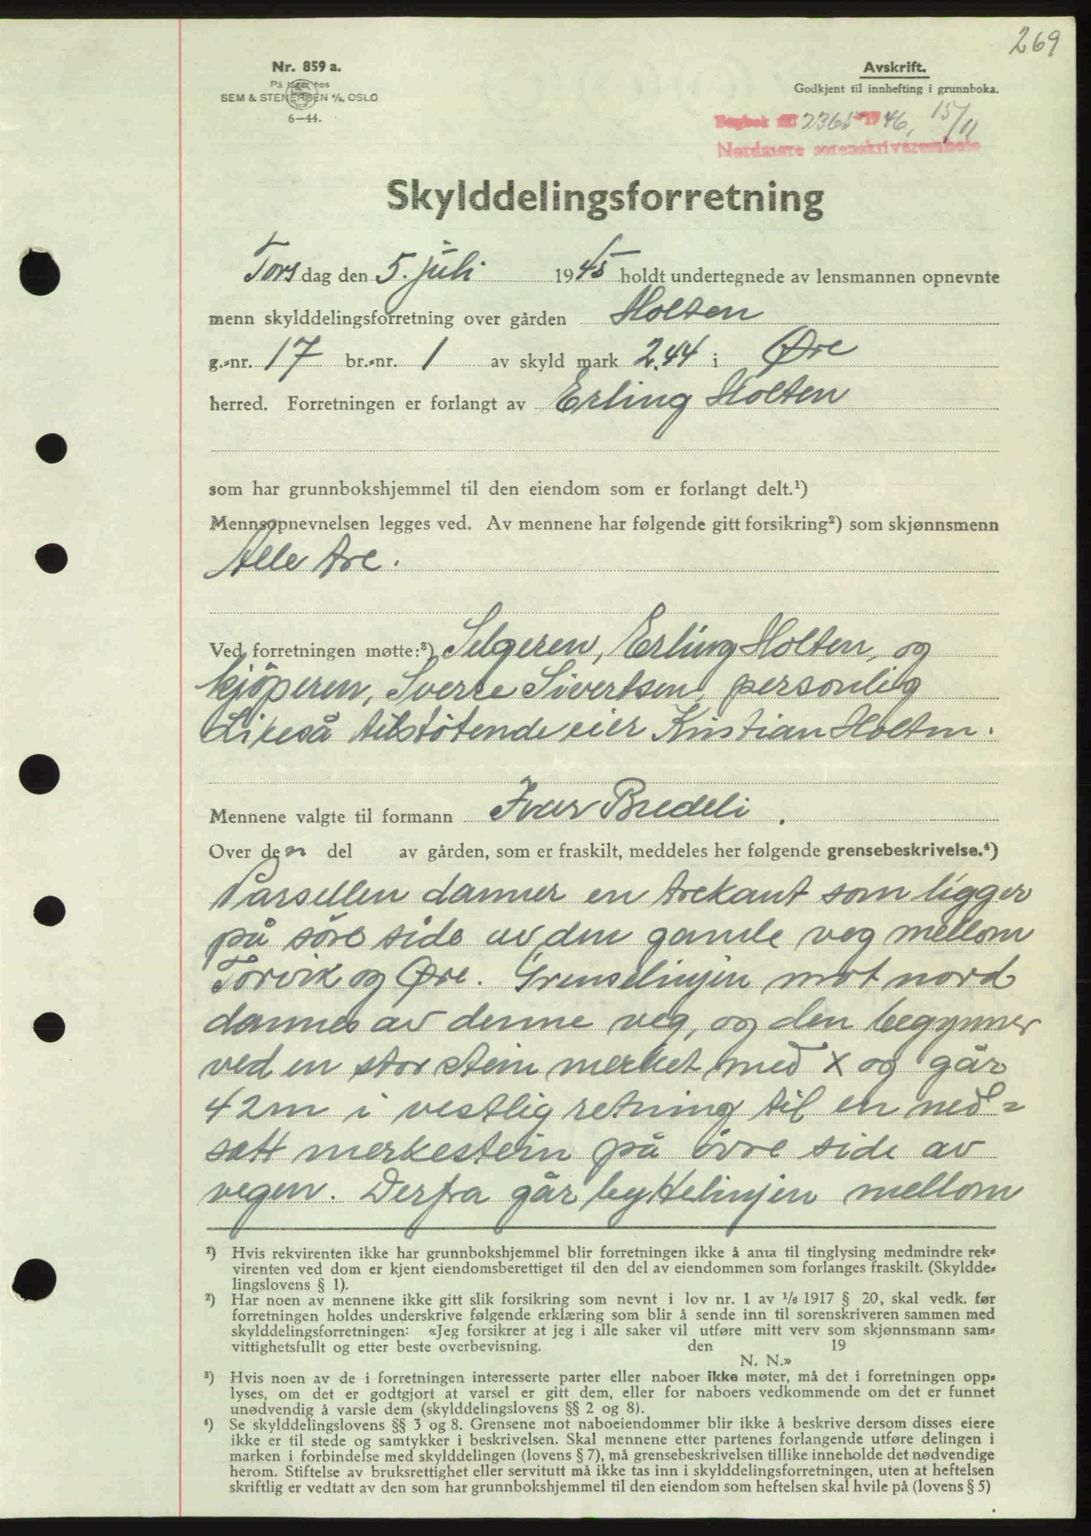 269
Nr. 859 a.
På lager hos
SEM & STENERSEN A/S, OSLO
6-44.
Avskrift.
Godkjent til innhefting i grunnboka.
Dagbok nr. 2365 1946, 15/11
Nordmøre sorenskriverembete
Skylddelingsforretning
Torsdag den 5. juli 1945 holdt undertegnede av lensmannen opnevnte
menn skylddelingsforretning over gården Holten
g.-nr. 17 br.-nr. 1 av skyld mark 2.44 i Øre
herred. Forretningen er forlangt av Erling Holten
som har grunnbokshjemmel til den eiendom som er forlangt delt.¹)
Mennsopnevnelsen legges ved. Av mennene har følgende gitt forsikring²) som skjønnsmenn
Alle tre.
Ved forretningen møtte:³) Selgeren, Erling Holten, og
kjöperen, Sverre Sivertsen, personlig
Likeså tilstøtende eier Kristian Holten.
Mennene valgte til formann Ivar Bredeli.
Over den del av gården, som er fraskilt, meddeles her følgende grensebeskrivelse.⁴)
Parsellen danner en trekant som ligger
på söre side av den gamle veg mellom
Torvik og Øre. Grenselinjen mot nord
dannes av denne veg, og den begynner
ved en stor stein merket med X og går
42m i vestlig retning til en ned=
satt merkestein på övre side av
vegen. Derfra går byttelinjen mellom
¹) Hvis rekvirenten ikke har grunnbokshjemmel blir forretningen ikke å anta til tinglysing medmindre rek-
virenten ved dom er kjent eiendomsberettiget til den del av eiendommen som forlanges fraskilt. (Skyldde-
lingslovens § 1).
²) Har noen av mennene ikke gitt slik forsikring som nevnt i lov nr. 1 av 1/6 1917 § 20, skal vedk. før
forretningen holdes underskrive følgende erklæring som blir å sende inn til sorenskriveren sammen med
skylddelingsforretningen: «Jeg forsikrer at jeg i alle saker vil utføre mitt verv som skjønnsmann sam-
vittighetsfullt og etter beste overbevisning. den 19
N. N.»
³) Hvis noen av de i forretningen interesserte parter eller naboer ikke møter, må det i forretningen opp-
lyses, om det er godtgjort at varsel er gitt dem, eller for naboers vedkommende om det er funnet
unødvendig å varsle dem (skylddelingslovens §§ 2 og 8).
⁴) Se skylddelingslovens §§ 3 og 8. Grensene mot naboeiendommer blir ikke å beskrive dersom disses eiere
ikke er til stede og samtykker i beskrivelsen. Skal mennene etter partenes forlangende utføre delingen i
marken i forbindelse med skylddelingen (lovens § 7), må grensebeskrivelsen tillike inneholde det nødvendige
herom. Stiftelse av bruksrettighet eller servitutt må ikke tas inn i skylddelingsforretningen, uten at heftelsen
skriftlig er vedtatt av den som har grunnbokshjemmel til den eiendom som heftelsen skal hvile på (lovens § 5)